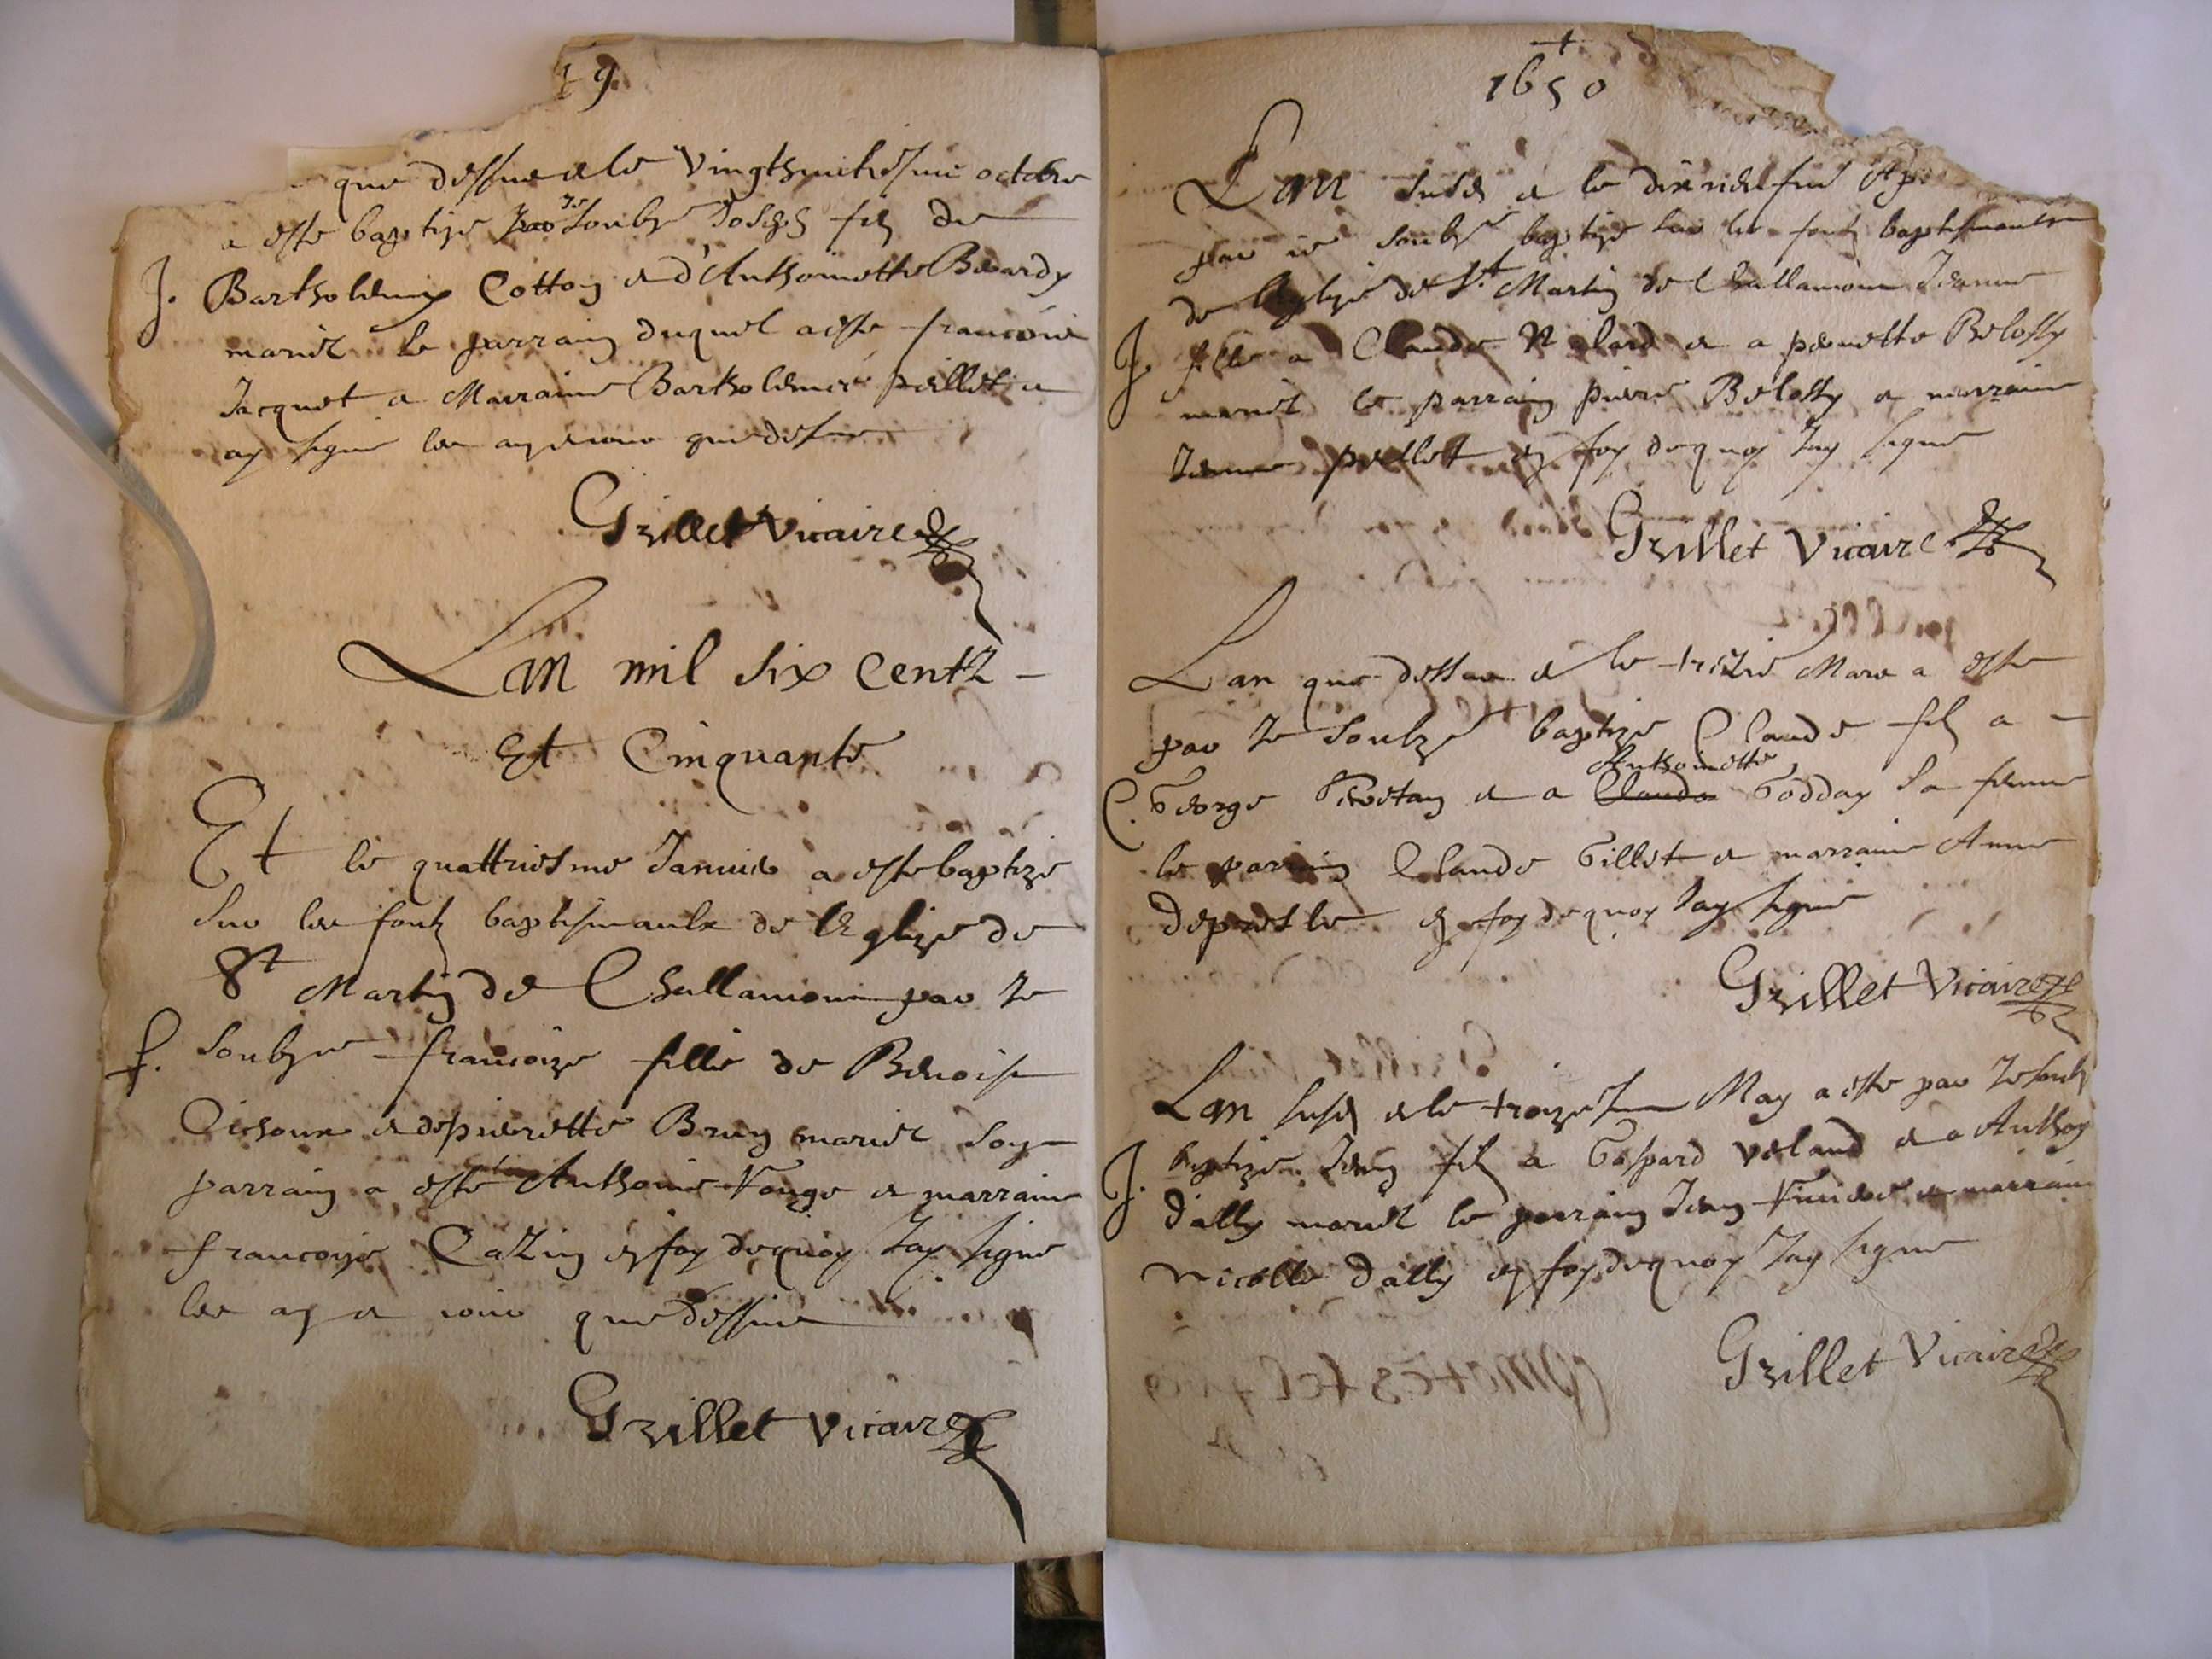 49
que dessus & le Vingthuictiesme octobre
a este baptize par Je Soubz^ne Joseph filz de
J. Bartholemy Cotton & d'Anthoinette Beardy
mariez le parrain duquel a este francois
Jacquet & Marraine Bartholemie peillet &
ay signe les an & iour que dessus
Grillet Vicaire
Lan mil Six Centz -
Et Cinquante
Et le quattriesme Januier a este baptize
Sur les fontz baptismaulx de l'Eglize de
St Martin de Challamon par Je
f. Soubz^ne francoize fille de Benoist
& de pierrette Brun mariez Son
parrain a este Anthoine Fonge & marraine
francoyse Cazin en foy de quoy Jay signe
les an & iour que dessus
Grillet Vicaire
1650
Lan susd & le
par ie soubz^ne baptize sur les fontz baptismaulx
de l'Eglize de St Martin de Challamon Jeanne
J. fille a Claude & a pernette Belossy
mariez le parrain pierre Belossy & marraine
Jeanne peillet en foy de quoy Jay signe
Grillet Vicaire
Lan que dessus & le treizie Mars a este
par Je Soubz^ne baptize Claude filz a -
Anthoinette
C. George & a Claude Godday Sa femme
le parrain Claude Gillet & marraine Anne
Depresle en foy de quoy Jay signe
Grillet Vicaire
Lan susd & le May a este par Je Soubz
J. baptize Jean filz a Gaspard Veland & a Anthoy
Dally mariez le parrain Jean & marraine
nicolle Dally en foy de quoy Jay signe
Grillet Vicaire